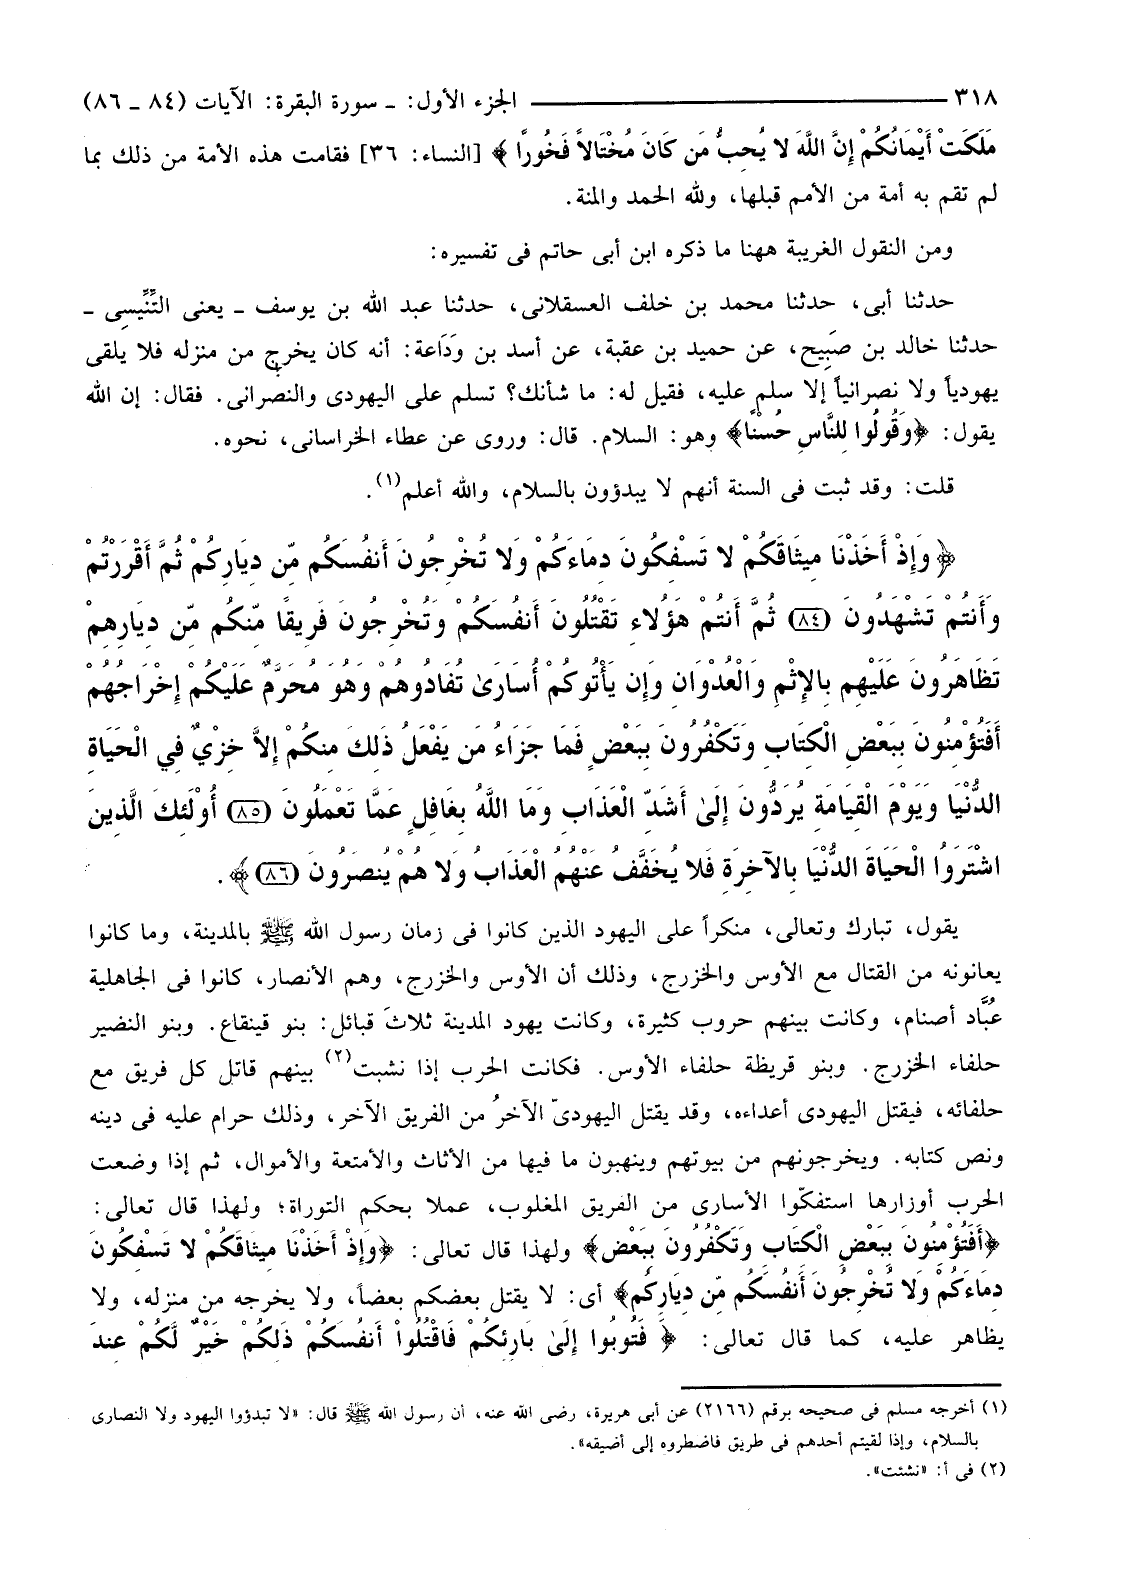 ٣١٨ ـــــــــــــــ الجزء الأول: ـ سورة البقرة: الآيات (٨٤ ـ ٨٦)
مَلَكَتْ أَيْمَانُكُمْ إِنَّ اللَّهَ لا يُحِبُّ مَن كَانَ مُخْتَالاً فَخُوراً ﴾ [النساء: ٣٦] فقامت هذه الأمة من ذلك بما
لم تقم به أمة من الأمم قبلها، ولله الحمد والمنة.
ومن النقول الغريبة ههنا ما ذكره ابن أبى حاتم فى تفسيره:
حدثنا أبى، حدثنا محمد بن خلف العسقلانى، حدثنا عبد الله بن يوسف ـ يعنى التِّنِّيسِى ـ
حدثنا خالد بن صَبِيح، عن حميد بن عقبة، عن أسد بن وَدَاعة: أنه كان يخرج من منزله فلا يلقى
يهودياً ولا نصرانياً إلا سلم عليه، فقيل له: ما شأنك؟ تسلم على اليهودى والنصرانى. فقال: إن الله
يقول: ﴿وَقُولُوا لِلنَّاسِ حُسْنًا﴾ وهو: السلام. قال: وروى عن عطاء الخراسانى، نحوه.
قلت: وقد ثبت فى السنة أنهم لا يبدؤون بالسلام، والله أعلم(١).
﴿ وَإِذْ أَخَذْنَا مِيثَاقَكُمْ لا تَسْفِكُونَ دِمَاءَكُمْ وَلا تُخْرِجُونَ أَنفُسَكُم مِّن دِيَارِكُمْ ثُمَّ أَقْرَرْتُمْ
وَأَنتُمْ تَشْهَدُونَ (٨٤) ثُمَّ أَنتُمْ هَؤُلاءِ تَقْتُلُونَ أَنفُسَكُمْ وَتُخْرِجُونَ فَرِيقًا مِّنكُم مِّن دِيَارِهِمْ
تَظَاهَرُونَ عَلَيْهِم بِالإِثْمِ وَالْعُدْوَانِ وَإِن يَأْتُوكُمْ أُسَارَىٰ تُفَادُوهُمْ وَهُوَ مُحَرَّمٌ عَلَيْكُمْ إِخْرَاجُهُمْ
أَفَتُؤْمِنُونَ بِبَعْضِ الْكِتَابِ وَتَكْفُرُونَ بِبَعْضٍ فَمَا جَزَاءُ مَن يَفْعَلُ ذَلِكَ مِنكُمْ إِلاَّ خِزْيٌ فِي الْحَيَاةِ
الدُّنْيَا وَيَوْمَ الْقِيَامَةِ يُرَدُّونَ إِلَىٰ أَشَدِّ الْعَذَابِ وَمَا اللَّهُ بِغَافِلٍ عَمَّا تَعْمَلُونَ (٨٥) أُولَئِكَ الَّذِينَ
اشْتَرَوُا الْحَيَاةَ الدُّنْيَا بِالآخِرَةِ فَلا يُخَفَّفُ عَنْهُمُ الْعَذَابُ وَلا هُمْ يُنصَرُونَ (٨٦) ﴾.
يقول، تبارك وتعالى، منكراً على اليهود الذين كانوا فى زمان رسول الله ﷺ بالمدينة، وما كانوا
يعانونه من القتال مع الأوس والخزرج، وذلك أن الأوس والخزرج، وهم الأنصار، كانوا فى الجاهلية
عُبَّاد أصنام، وكانت بينهم حروب كثيرة، وكانت يهود المدينة ثلاثَ قبائل: بنو قينقاع. وبنو النضير
حلفاء الخزرج. وبنو قريظة حلفاء الأوس. فكانت الحرب إذا نشبت(٢) بينهم قاتل كل فريق مع
حلفائه، فيقتل اليهودى أعداءه، وقد يقتل اليهودىّ الآخرُ من الفريق الآخر، وذلك حرام عليه فى دينه
ونص كتابه. ويخرجونهم من بيوتهم وينهبون ما فيها من الأثاث والأمتعة والأموال، ثم إذا وضعت
الحرب أوزارها استفكّوا الأسارى من الفريق المغلوب، عملا بحكم التوراة؛ ولهذا قال تعالى:
﴿أَفَتُؤْمِنُونَ بِبَعْضِ الْكِتَابِ وَتَكْفُرُونَ بِبَعْضٍ﴾ ولهذا قال تعالى: ﴿وَإِذْ أَخَذْنَا مِيثَاقَكُمْ لا تَسْفِكُونَ
دِمَاءَكُمْ وَلا تُخْرِجُونَ أَنفُسَكُم مِّن دِيَارِكُمْ﴾ أى: لا يقتل بعضكم بعضاً، ولا يخرجه من منزله، ولا
يظاهر عليه، كما قال تعالى: ﴿ فَتُوبُوا إِلَىٰ بَارِئِكُمْ فَاقْتُلُواْ أَنفُسَكُمْ ذَلِكُمْ خَيْرٌ لَّكُمْ عِندَ
(١) أخرجه مسلم فى صحيحه برقم (٢١٦٦) عن أبى هريرة، رضى الله عنه، أن رسول الله ﷺ قال: «لا تبدؤوا اليهود ولا النصارى
بالسلام، وإذا لقيتم أحدهم فى طريق فاضطروه إلى أضيقه».
(٢) فى أ: «نشئت».